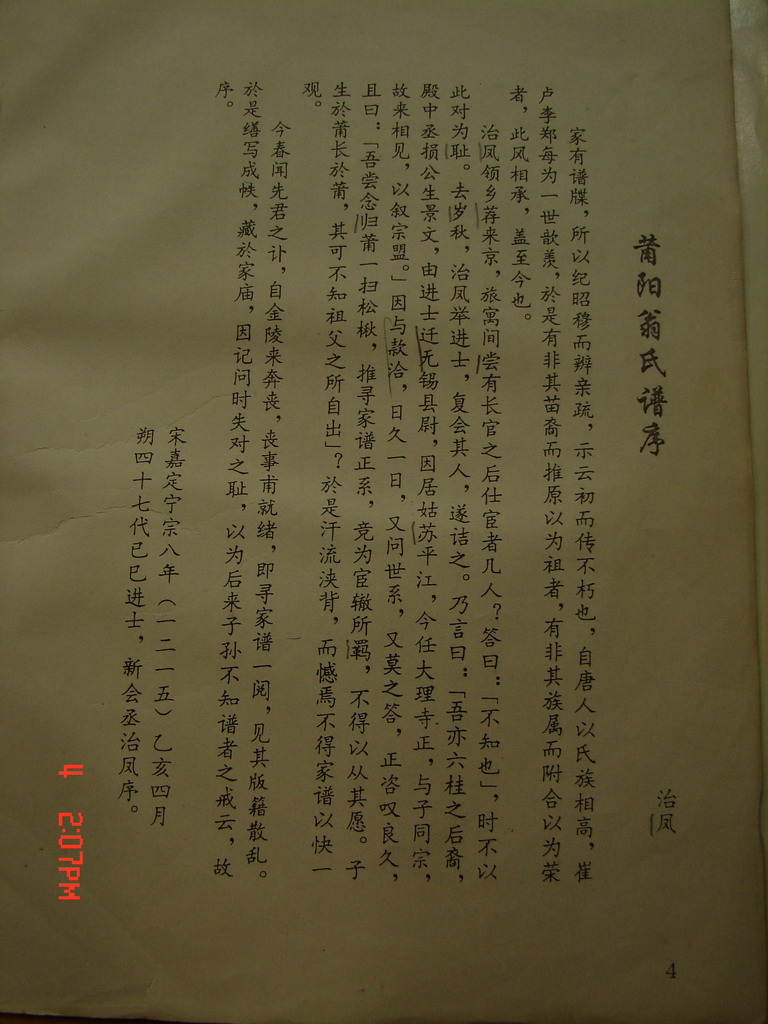 莆阳翁氏谱序
治凤
家有谱牒，所以纪昭穆而辨亲疏，示云初而传不朽也，自唐人以氏族相高，崔
卢李郑每为一世歆羡，於是有非其苗裔而推原以为祖者，有非其族属而附合以为荣
者，此风相承，盖至今也。
治凤领乡荐来京，旅寓间尝有长官之后仕宦者几人？答曰：「不知也」，时不以
此对为耻。去岁秋，治凤举进士，复会其人，遂诘之。乃言曰：「吾亦六桂之后裔，
殿中丞损公生景文，由进士迁无锡县尉，因居姑苏平江，今任大理寺正，与子同宗，
故来相见，以叙宗盟。」因与款洽，日久一日，又问世系，又莫之答，正咨叹良久，
且曰：「吾尝念归莆一扫松楸，推寻家谱正系，竞为宦辙所羁，不得以从其愿。子
生於莆长於莆，其可不知祖父之所自出」？於是汗流浃背，而憾焉不得家谱以快一
观。
今春闻先君之讣，自金陵来奔丧，丧事甫就绪，即寻家谱一阅，见其版籍散乱。
於是缮写成帙，藏於家庙，因记问时失对之耻，以为后来子孙不知谱者之戒云，故
序。
宋嘉定宁宗八年（一二一五）乙亥四月
朔四十七代已巳进士，新会丞治凤序。
4
4 2:07PM